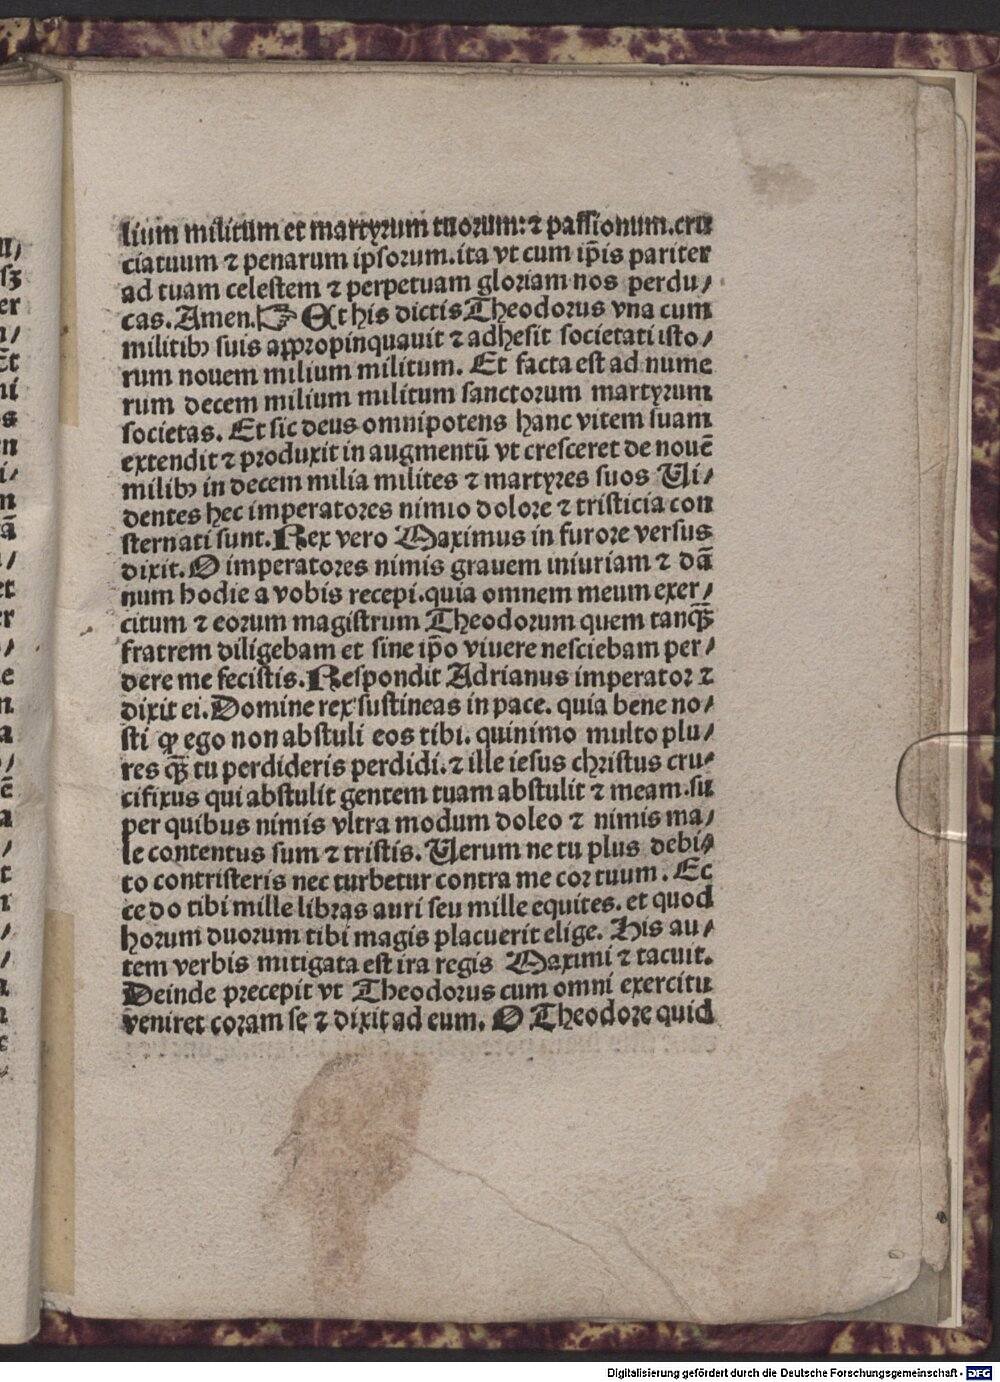 lium militum et martyrum tuorum: ⁊ passionum. cru
ciatuum ⁊ penarum ipsorum. ita vt cum ip̄is pariter
ad tuam celestem ⁊ perpetuam gloriam nos perdu/
cas. Amen. ☞ Et his dictis Theodorus vna cum
militibꝯ suis appropinquauit ⁊ adhesit societati isto/
rum nouem milium militum. Et facta est ad nume
rum decem milium militum sanctorum martyrum
societas. Et sic deus omnipotens hanc vitem suam
extendit ⁊ produxit in augmentū vt cresceret de nouē
milibꝯ in decem milia milites ⁊ martyres suos Ui/
dentes hec imperatores nimio dolore ⁊ tristicia con
sternati sunt. Rex vero Maximus in furore versus
dixit. O imperatores nimis grauem iniuriam ⁊ dā
num hodie a vobis recepi. quia omnem meum exer/
citum ⁊ eorum magistrum Theodorum quem tanqꝫ̄
fratrem diligebam et sine ip̄o viuere nesciebam per/
dere me fecistis. Respondit Adrianus imperator ⁊
dixit ei. Domine rex sustineas in pace. quia bene no/
sti ꝙ ego non abstuli eos tibi. quinimo multo plu/
res qꝫ̄ tu perdideris perdidi. ⁊ ille iesus christus cru/
cifixus qui abstulit gentem tuam abstulit ⁊ meam. su
per quibus nimis vltra modum doleo ⁊ nimis ma/
le contentus sum ⁊ tristis. Uerum ne tu plus debi/
to contristeris nec turbetur contra me cor tuum. Ec
ce do tibi mille libras auri seu mille equites. et quod
horum duorum tibi magis placuerit elige. His au/
tem verbis mitigata est ira regis Maximi ⁊ tacuit.
Deinde precepit vt Theodorus cum omni exercitu
veniret coram se ⁊ dixit ad eum. O Theodore quid
Digitalisierung gefördert durch die Deutsche Forschungsgemeinschaft - DFG